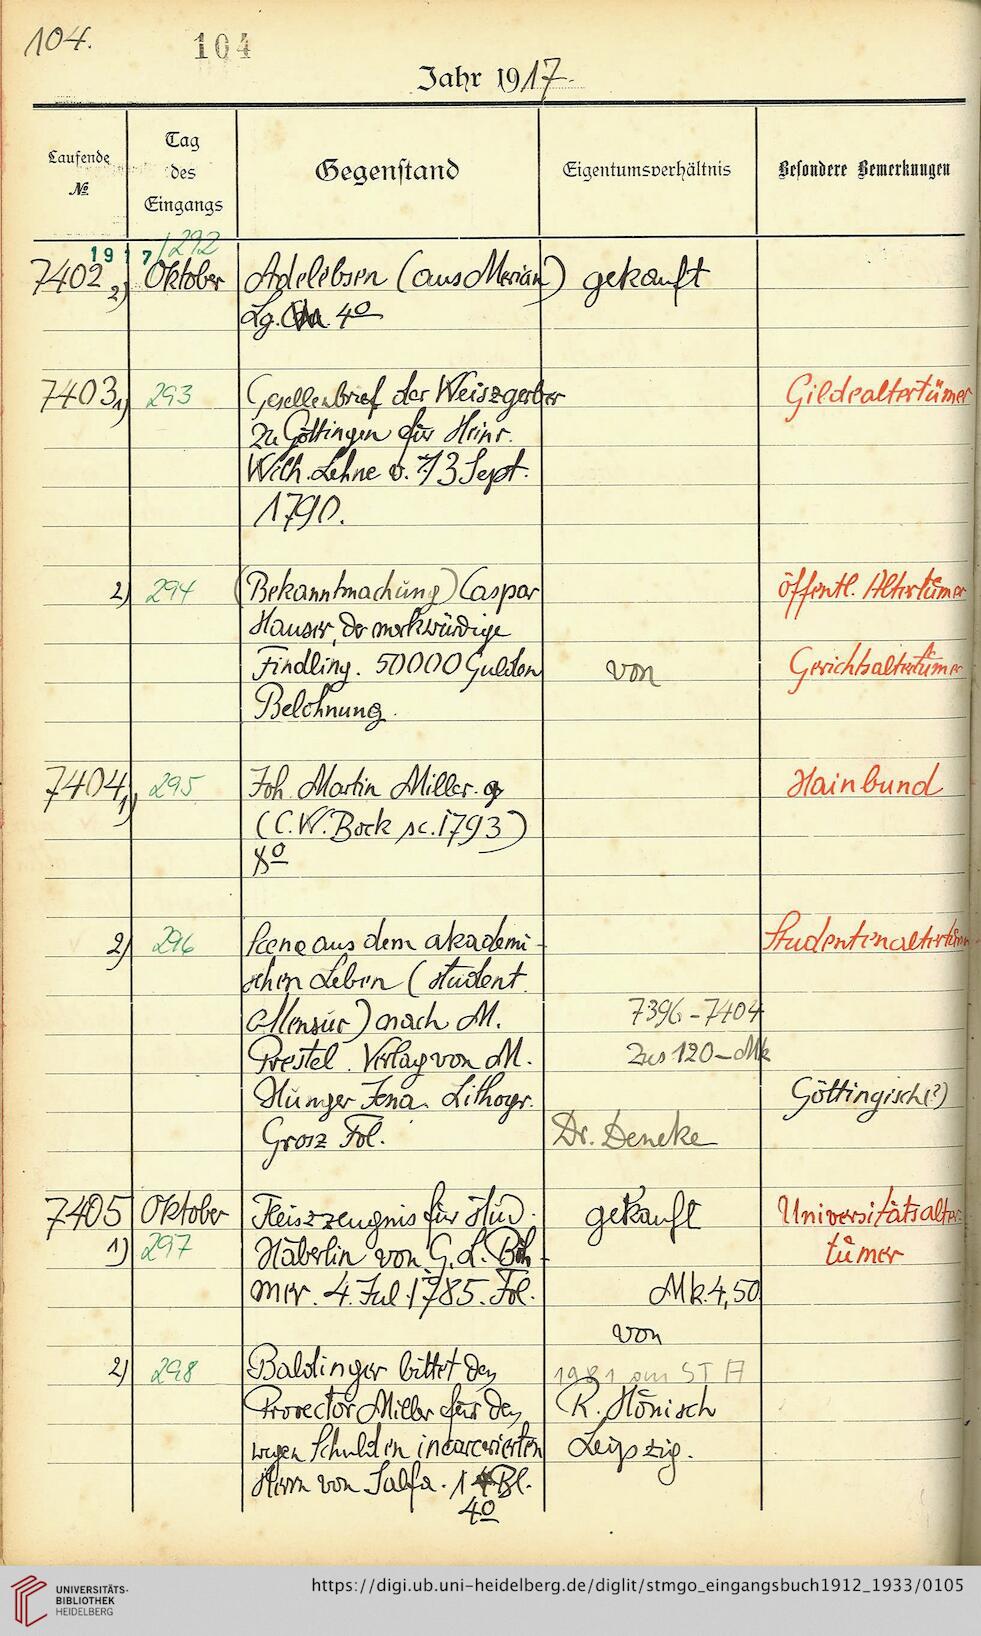 104.
104
Jahr 1917.
Laufende
№
Tag
des
Eingangs
Gegenstand
Eigentumsverhältnis
Besondere Bemerkungen
1917/292
7402 2) Oktober Adelebsen (aus Merian) gekauft
Lg. 4º
7403 1) 293 Gesellenbrief der Weiszgerber Gildealtertümer
zu Göttingen für Heinr.
Wilh. Lehne v. 13 Sept.
1790.
2) 294 (Bekanntmachung) Caspar öffentl. Altertümer
Hauser, der merkwürdige
Findling. 50000 Gulden von Gerichtsaltertümer
Belohnung.
7404 1) 295 Joh. Martin Miller. Hainbund
(C. W. Bock sc. 1793)
8º
2) 296 Scene aus dem akademi- Studentenaltertüm
schen Leben (student.
Mensur) nach M. 7396-7404
Prestel. Verlag von M. zus 120 - Mk
Hunger Jena. Lithogr. Göttingisch (?)
Grosz Fol. Dr. Deneke
7405 Oktober Fleiszzeugnis für stud. gekauft Universitätsalter-
1) 297 Häberlin von G. L. Böh- tümer
mer. 4. Jul. 1785. Fol. Mk. 4,50
von
2) 298 Baldinger bittet den 1981 am ST A
Prorector Miller für den R. Hönisch
wegen Schulden incarcerierten Leipzig.
Herrn von Salfa. 1 Bl.
4º
UNIVERSITÄTS-
BIBLIOTHEK
HEIDELBERG
https://digi.ub.uni-heidelberg.de/diglit/stmgo_eingangsbuch1912_1933/0105